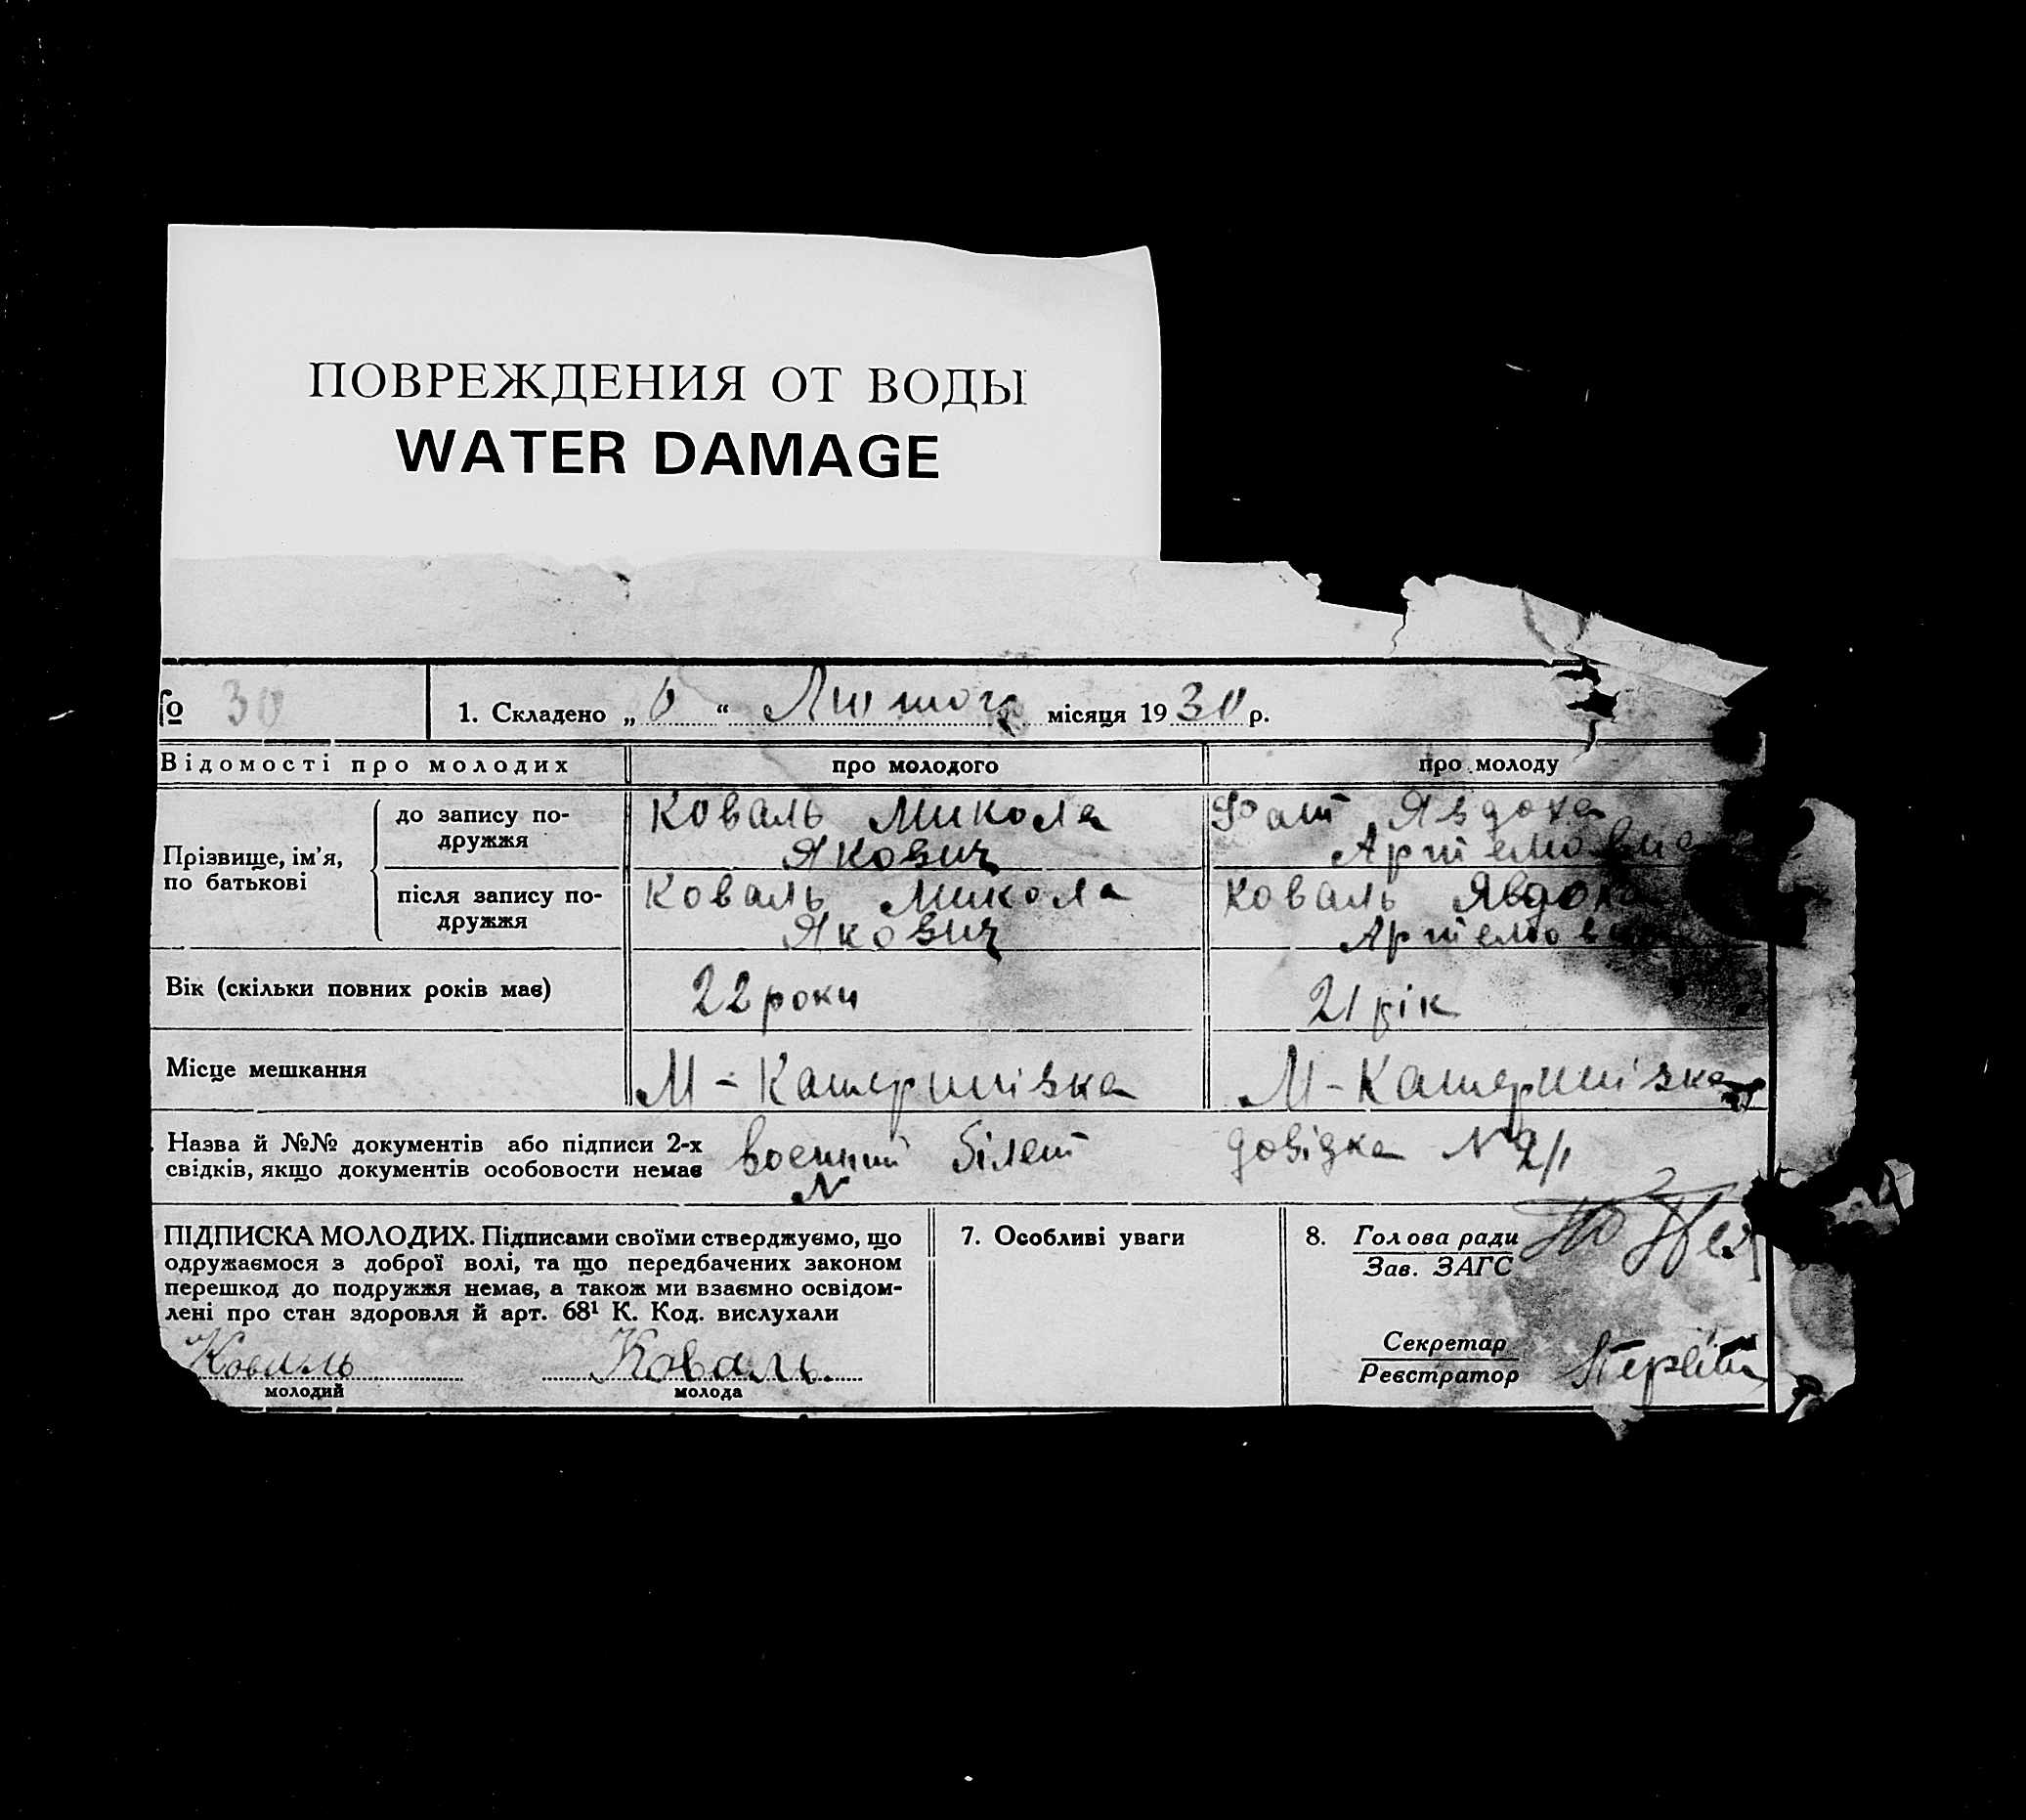 ПОВРЕЖДЕНИЯ ОТ ВОДЫ
WATER DAMAGE
№ 30
1. Складено „ 6 “ Лютого місяця 1930 р.
Відомості про молодих
про молодого
про молоду
Прізвище, ім’я,
по батькові
до запису по-
дружжя
Коваль Микола
Якович
Явдоха
Артемовна
після запису по-
дружжя
Коваль Микола
Якович
Коваль Явдоха
Вік (скільки повних років має)
22 роки
21 рік
Місце мешкання
М-Катеринівка
М-Катеринівка
Назва й №№ документів або підписи 2-х
свідків, якщо документів особовости немає
военний білет
N
довідка N 2/1
ПІДПИСКА МОЛОДИХ. Підписами своїми стверджуємо, що
одружаємося з доброї волі, та що передбачених законом
перешкод до подружжя немає, а також ми взаємно освідом-
лені про стан здоровля й арт. 68¹ К. Код. вислухали
Коваль
молодий
Коваль
молода
7. Особливі уваги
8. Голова ради
Зав. ЗАГС
Секретар
Реєстратор